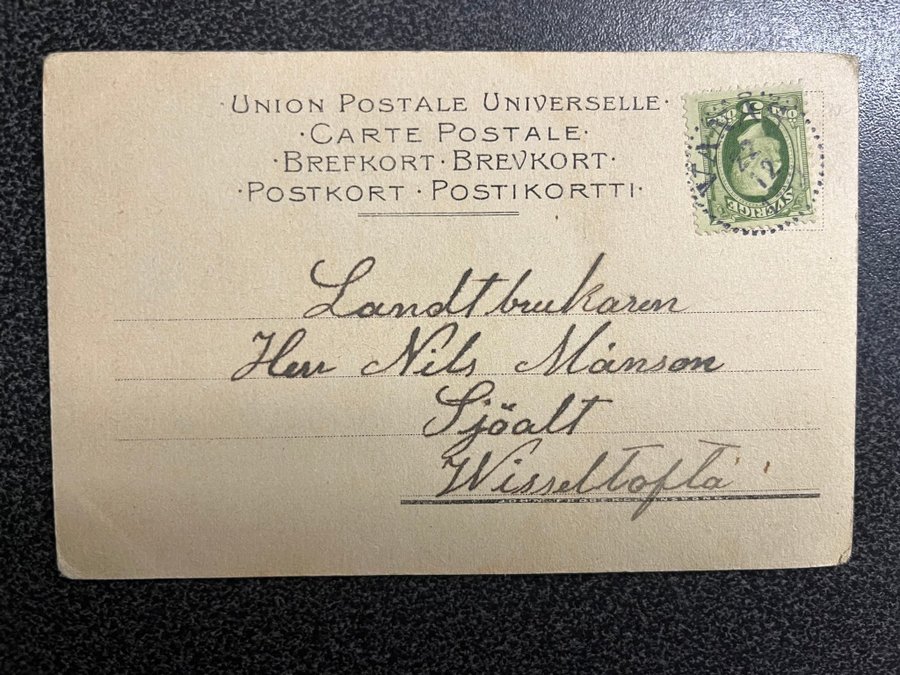 ·UNION POSTALE UNIVERSELLE·
·CARTE POSTALE·
·BREFKORT·BREVKORT·
·POSTKORT·POSTIKORTTI·
SVERIGE
22
12
Landtbrukaren
Herr Nils Månson
Sjöalt
Wisseltofta